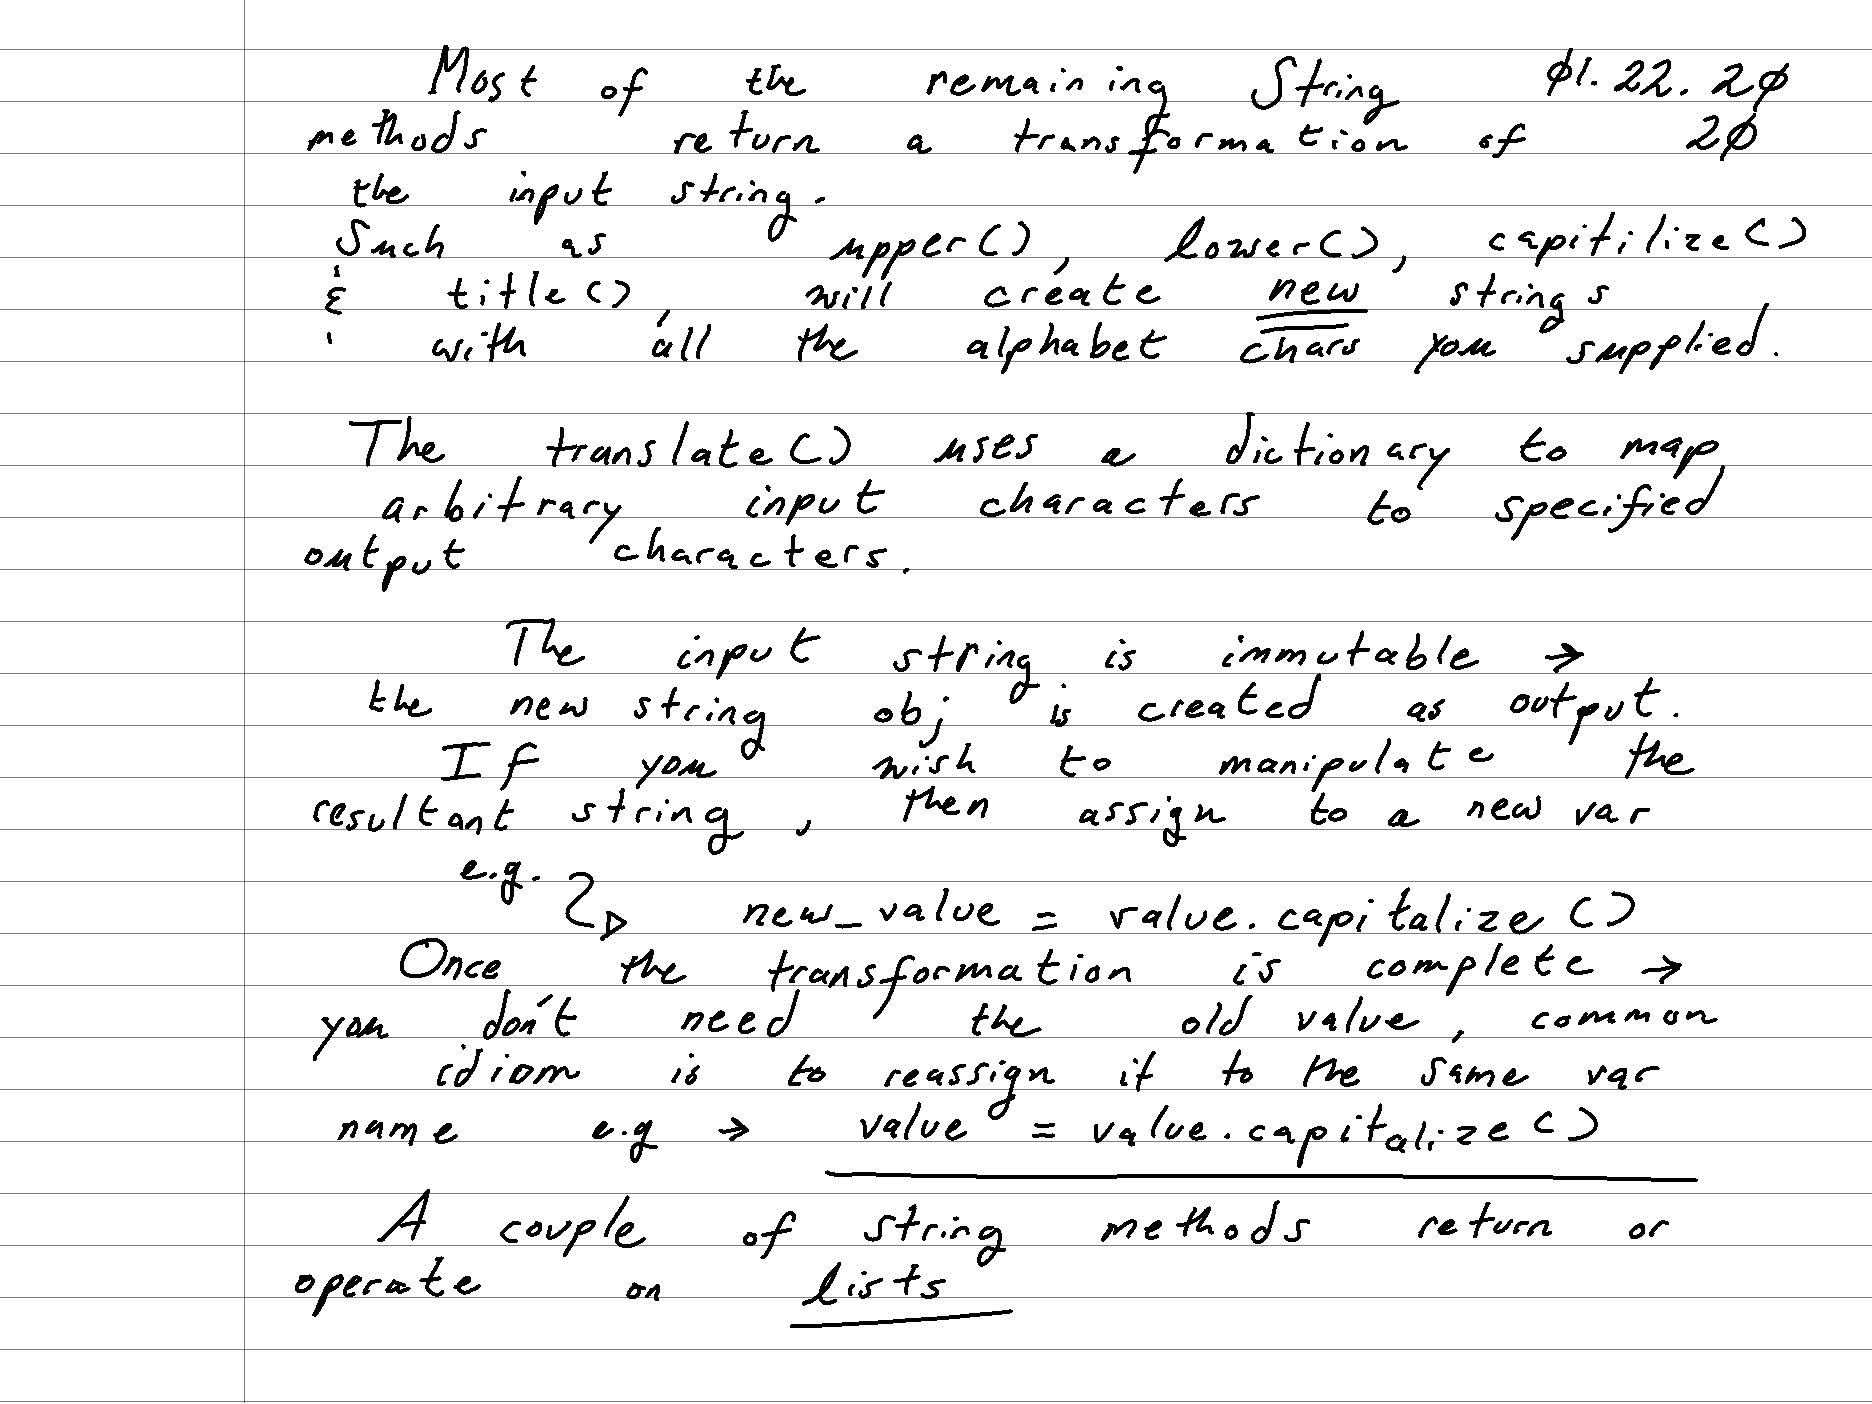 Most of the remaining String ø1.22.2ø
methods return a transformation of 2ø
the input string.
Such as upper(), lower(), capitilize()
& title(), will create new strings
with all the alphabet chars you supplied.
The translate() uses a dictionary to map
arbitrary input characters to specified
output characters.
The input string is immutable →
the new string obj is created as output.
If you wish to manipulate the
resultant string, then assign to a new var
e.g.
new_value = value.capitalize()
Once the transformation is complete →
you don't need the old value, common
idiom is to reassign it to the same var
name e.g → value = value.capitalize()
A couple of string methods return or
operate on lists